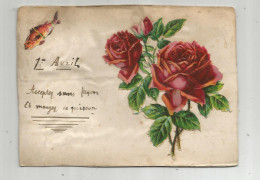 1er Avril
Acceptez sans façon
Et mangez ce poisson